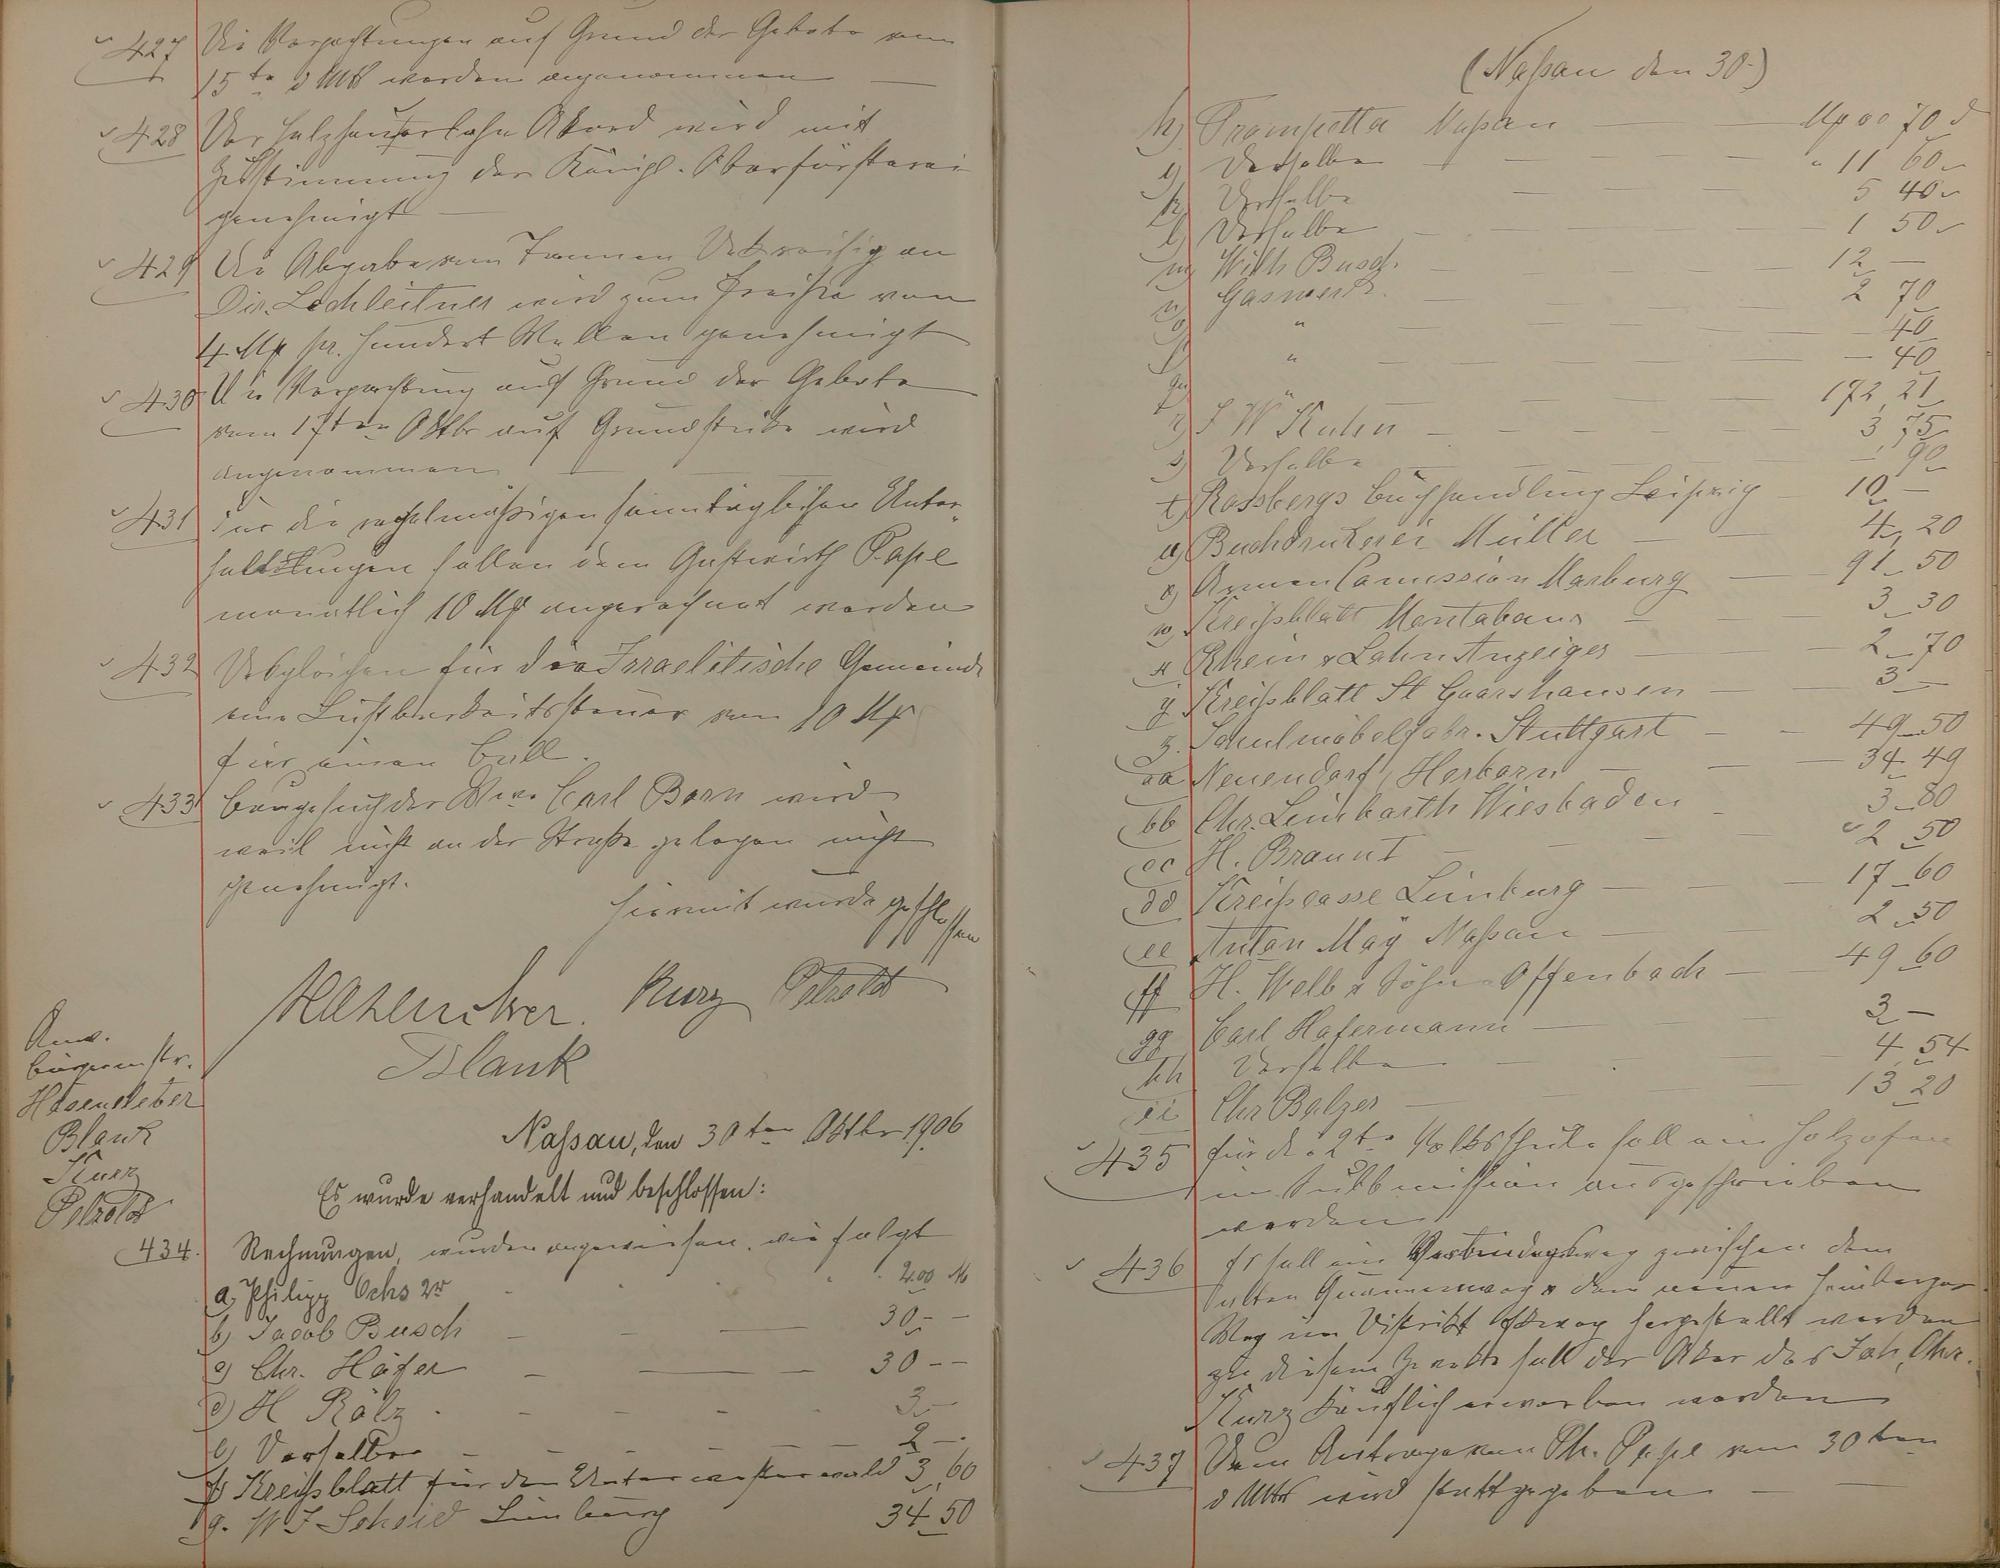 427 Die Verpachtungen auf Grund der Gebote vom
15te d Mts werden angenommen
428 Der Holzhauerlohn Akord wird mit
Zustimmung der Königl. Oberförsterei
genehmigt
429 Die Abgabe von Tannen Deckreisig an
Dir. Lechleitner wird zum Preise von
4 Mk pr. Hundert Wellen genehmigt
430 Die Verpachtung auf Grund der Gebote
vom 17ten Oktbr auf Grundstücke wird
angenommen
431 Für die regelmäßigen sonntäglichen Unter„
haltungen sollen dem Gastwirth Pape
monatlich 10 Mk angerechnet werden
432 Desgleichen für die Israelitische Gemeinde
eine Lustbarkeitssteuer von 10 Mk
für einen Ball.
433 Baugesuch der Wwe. Carl Born wird
weil nicht an der Straße gelegen nicht
genehmigt.
Hiermit wurde geschlossen
Hasenclever. Kurz Petzoldt
Blank
Anw.
Bürgermstr.
Hasenclever
Blank
Kurz
Petzoldt
Naßau, den 30ten Oktbr 1906
Es wurde verhandelt und beschlossen:
434. Rechnungen, wurden angewiesen, wie folgt
a, Philipp Ochs 2r 200 M
b) Jacob Busch 30 –
c) Chr. Häfer 30 –
d) H Rölz 3 –
e) Derselbe 2 –
f) Kreisblatt für den Unterwesterwald 3,60
g. W J Scheid Limburg 34 50
(Naßau den 30.)
h) Trompetta Naßau Mk 70
i) Derselbe " 11 60
k) Derselbe 5 40
l) Derselbe 1 50
m) Wilh Busch. 12 –
n) Gaswerk. 2 70
o) " – 40
p) " – 40
q) " 172,21
r) J W Kuhn 3,75
s) Derselbe – 90
t) Rossbergs Buchhandlung Leipzig 10 –
u) Buchdruckerei Müller 4,20
v) Armen Comission Marburg 91 50
w) Kreisblatt Montabaur 3 30
x Rhein & Lahn Anzeiger 2 70
y Kreisblatt St Goarshausen 3 –
z. Schulmöbelfabr. Stuttgart 49 50
aa Neuendorf, Herborn 34 49
bb Chr. Limbarth Wiesbaden 3 80
cc H. Braunt 2 50
dd Kreiscasse Limburg 17 60
ee Anton May Naßau 2 50
ff H. Welb & Söhne Offenbach 49 60
gg Carl Hafermann 3 –
hh Derselbe 4,54
ii Chr Balzer 13 20
435 für die 2te Volksschule soll ein Holzofen
in Submission ausgeschrieben
werden
436 Es soll ein Verbindungsweg zwischen dem
alten weg & dem neuen Heimberger
Weg im Distrikt hergestellt werden
zu diesem Zwecke soll der Aker des Joh. Chr.
Kurz käuflich erworben werden
437 Dem Antrage von Ph. Pape vom 30ten
d Mts wird stattgegeben